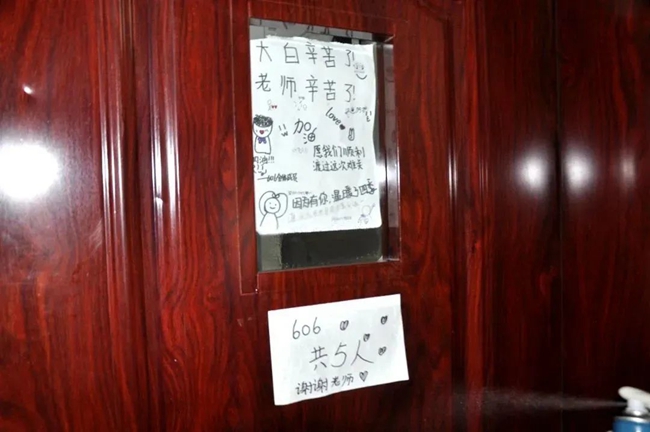 大白辛苦了!
老师辛苦了!
love
加油
愿我们顺利
渡过这次难关
因为有你,温暖了四季
606
共5人
谢谢老师